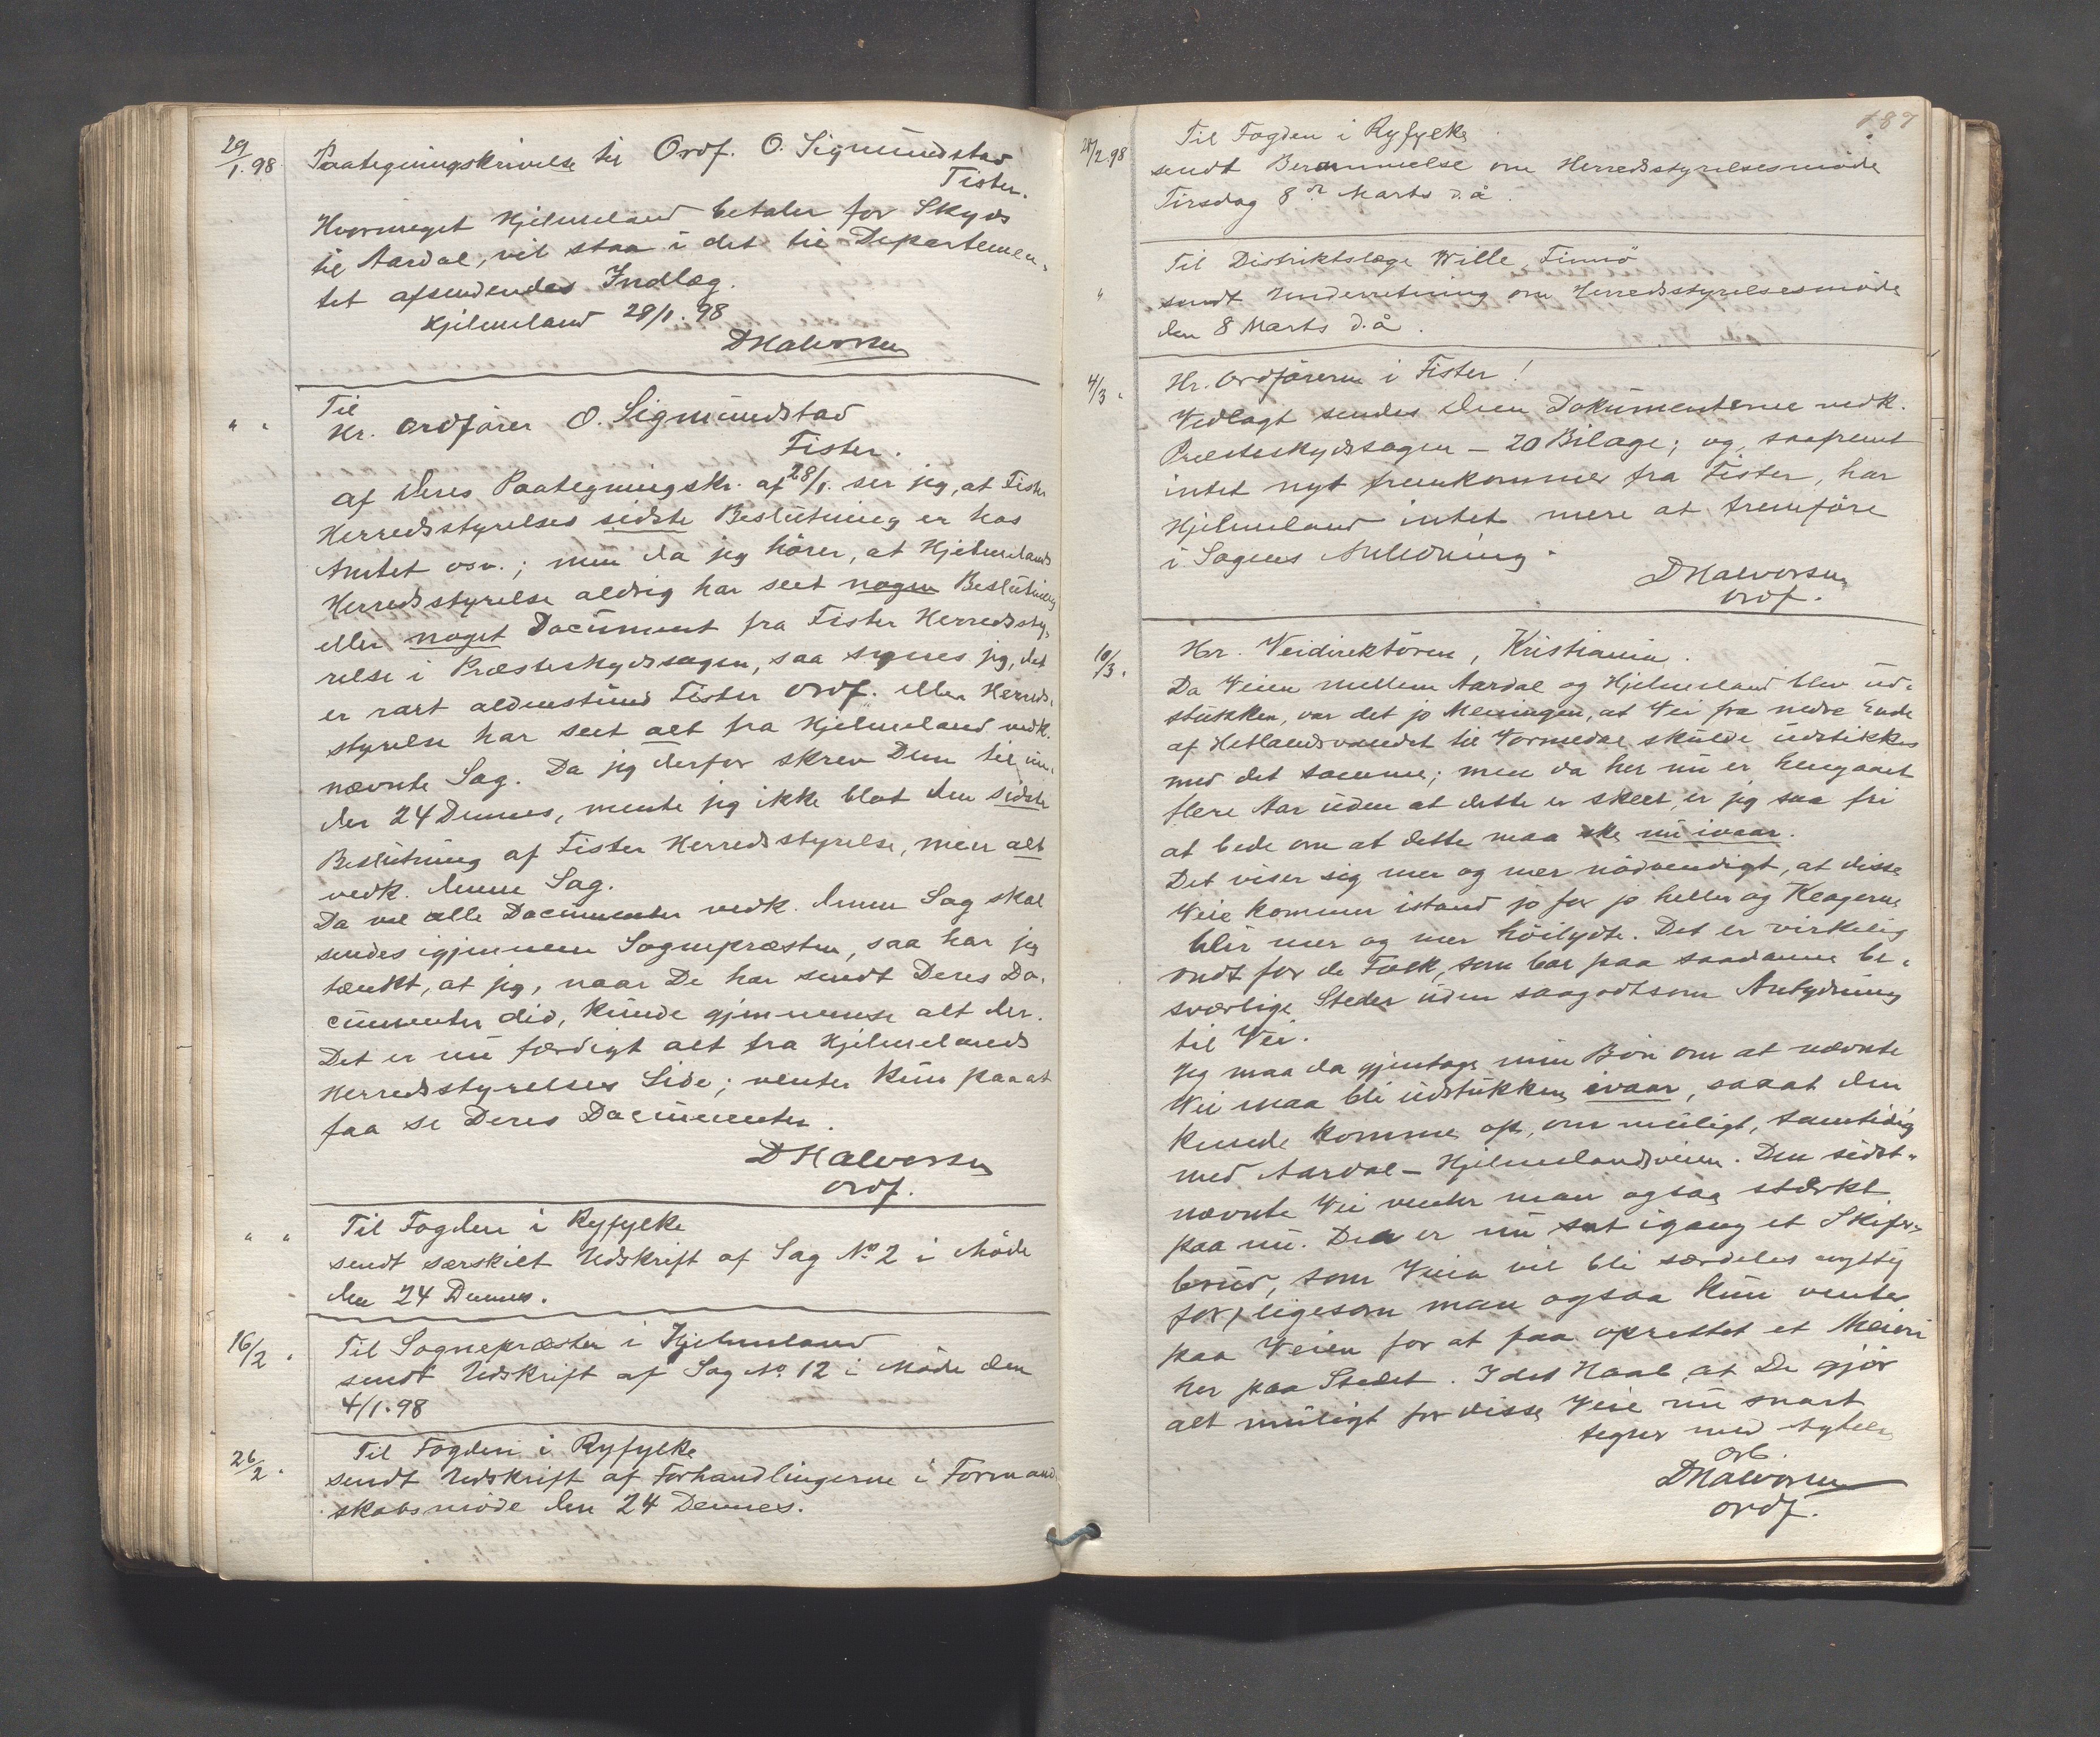 29/1. 98. Paategningskrivelse til Ordf. O. Sigmundstad
Fister.
Hvormeget Hjelmeland betaler for Skyds
til Aardal, vil staa i det til Departemen-
tet afsendendes Indlæg.
Hjelmeland 28/1. 98
DHalvorsen
" " Til
Hr. Ordförer O. Sigmundstad
Fister.
Af Deres Paategningskr. af 28/1. ser jeg, at Fister
Herredsstyrelses sidste Beslutning er hos
Amtet osv.; men da jeg hörer, at Hjelmelands
Herredsstyrelse aldrig har seet nogen Beslutning
eller noget Document fra Fister Herredssty-
relse i Præsteskydssagen, saa synes jeg, det
er rart aldenstund Fister Ordf. eller Herreds-
styrelse har seet alt fra Hjelmeland vedk.
nævnte Sag. Da jeg derfor skrev Dem til un-
der 24 Dennes, mente jeg ikke blot den sidste
Beslutning af Fister Herredsstyrelse, men alt
vedk. denne Sag.
Da vel alle Documenter vedk. denne Sag skal
sendes igjennem Sognepræsten, saa har jeg
tænkt, at jeg, naar De har sendt Deres Do-
cumenter did, kunde gjennemse alt der.
Det er nu færdigt alt fra Hjelmelands
Herredsstyrelses Side; venter kun paa at
faa se Deres Documenter.
DHalvorsen
Ordf.
" " Til Fogden i Ryfylke
sendt særskilt Udskrift af Sag No 2 i Möde
den 24 Dennes.
16/2 " Til Sognepræsten i Hjelmeland
sendt Udskrift af Sag No. 12 i Möde den
4/1. 98
26/2. " Til Fogden i Ryfylke
sendt Udskrift af Forhandlingerne i Formand-
skabsmöde den 24 Dennes.
187
28/2 98 Til Fogden i Ryfylke
sendt Berammelse om Herredsstyrelsesmöde
Tirsdag 8de Marts d.å.
" Til Distriktslæge Wille, Finnö
sendt Underretning om Herredsstyrelsesmöde
den 8 Marts d.å.
4/3 " Hr. Ordföreren i Fister!
Vedlagt sendes Dem Dokumenterne vedk.
Præsteskydssagen – 20 Bilage; og, saafremt
intet nyt fremkommer fra Fister, har
Hjelmeland intet mere at fremföre
i Sagens Anledning.
DHalvorsen
Ordf.
10/3. Hr. Veidirektören, Kristiania.
Da Veien mellem Aardal og Hjelmeland blev ud-
stukken, var det jo Meningen, at Vei fra nedre Ende
af Hetlandsvandet til Vormedal skulde udstikkes
med det samme; men da her nu er hengaaet
flere Aar uden at dette er skeet, er jeg saa fri
at bede om at dette maa ske nu ivaar.
Det viser sig mer og mer nödvendigt, at disse
Veie kommer istand jo för jo heller og Klagerne
blir mer og mer höilydte. Det er virkelig
ondt for de Folk, som bor paa saadanne be-
sværlige Steder uden saagodtsom Antydning
til Vei.
Jeg maa da gjentage min Bön om at nævnte
Vei maa bli udstukken ivaar, saaat den
kunde komme op, om muligt, samtidig
med Aardal – Hjelmelandsveien. Den sidst-
nævnte Vei venter man ogsaa stærkt
paa nu. Der er nu sat igang et Skifer-
brud, som Veien vil bli særdeles nyttig
for, ligesom man ogsaa kun venter
paa Veien for at faa oprettet et Meieri
her paa Stedet. I det Haab, at De gjör
alt muligt for disse Veie nu snart
tegner med Agtelse
Arb.
DHalvorsen
Ordf.